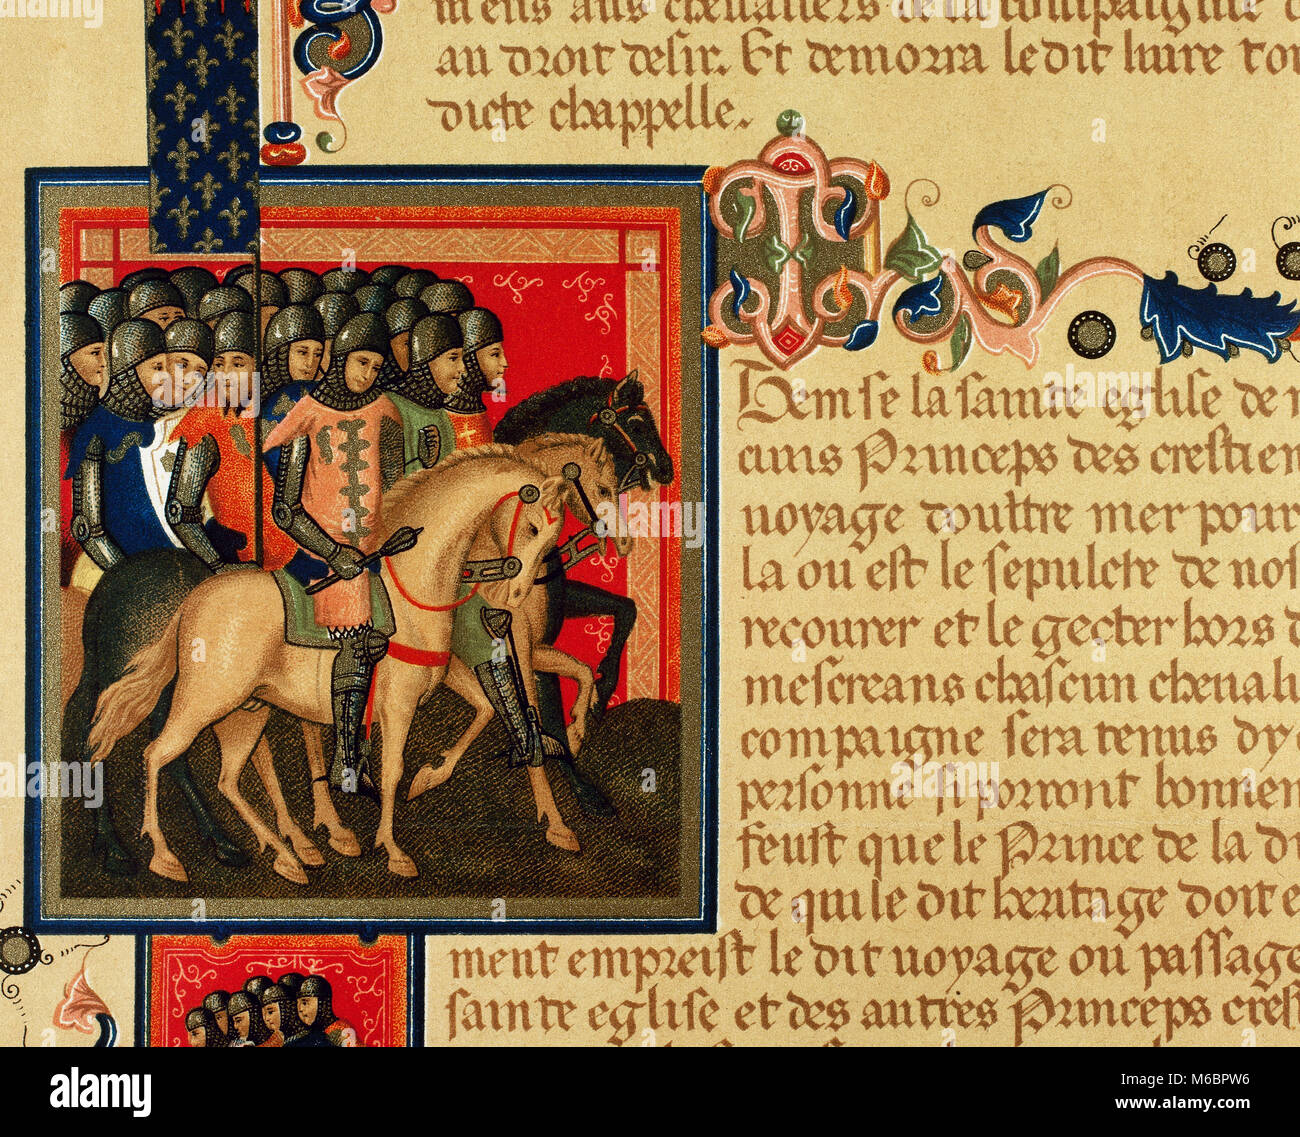 mens aus chevaliers de la compaignie
au droit desir. Et demorra le dit livre
dicte chappelle.
Item se la sainte eglise de
Princeps des crestien
voyage doultre mer pour
la ou est le sepulcre de nos
recourer et le gecter hors d
mescreans chascun chevali
compaigne sera tenus dy
personne si porront bonnem
feust que le Prince de la di
de qui le dit heritage doit e
ment empreist le dit voyage ou passage
sainte eglise et des autres Princeps crest
a
alamy
Image ID: M6BPW6
www.alamy.com